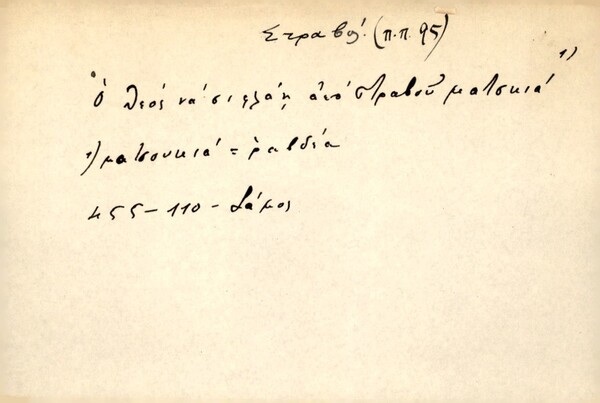 Στραβός (π.π. 95)
Ὁ Θεός νά σι φλάῃ ἀπό στραβοῦ ματσκιά ¹⁾
¹⁾ ματσουκιά = ῥαβδέα
455 - 110 - Σάμος